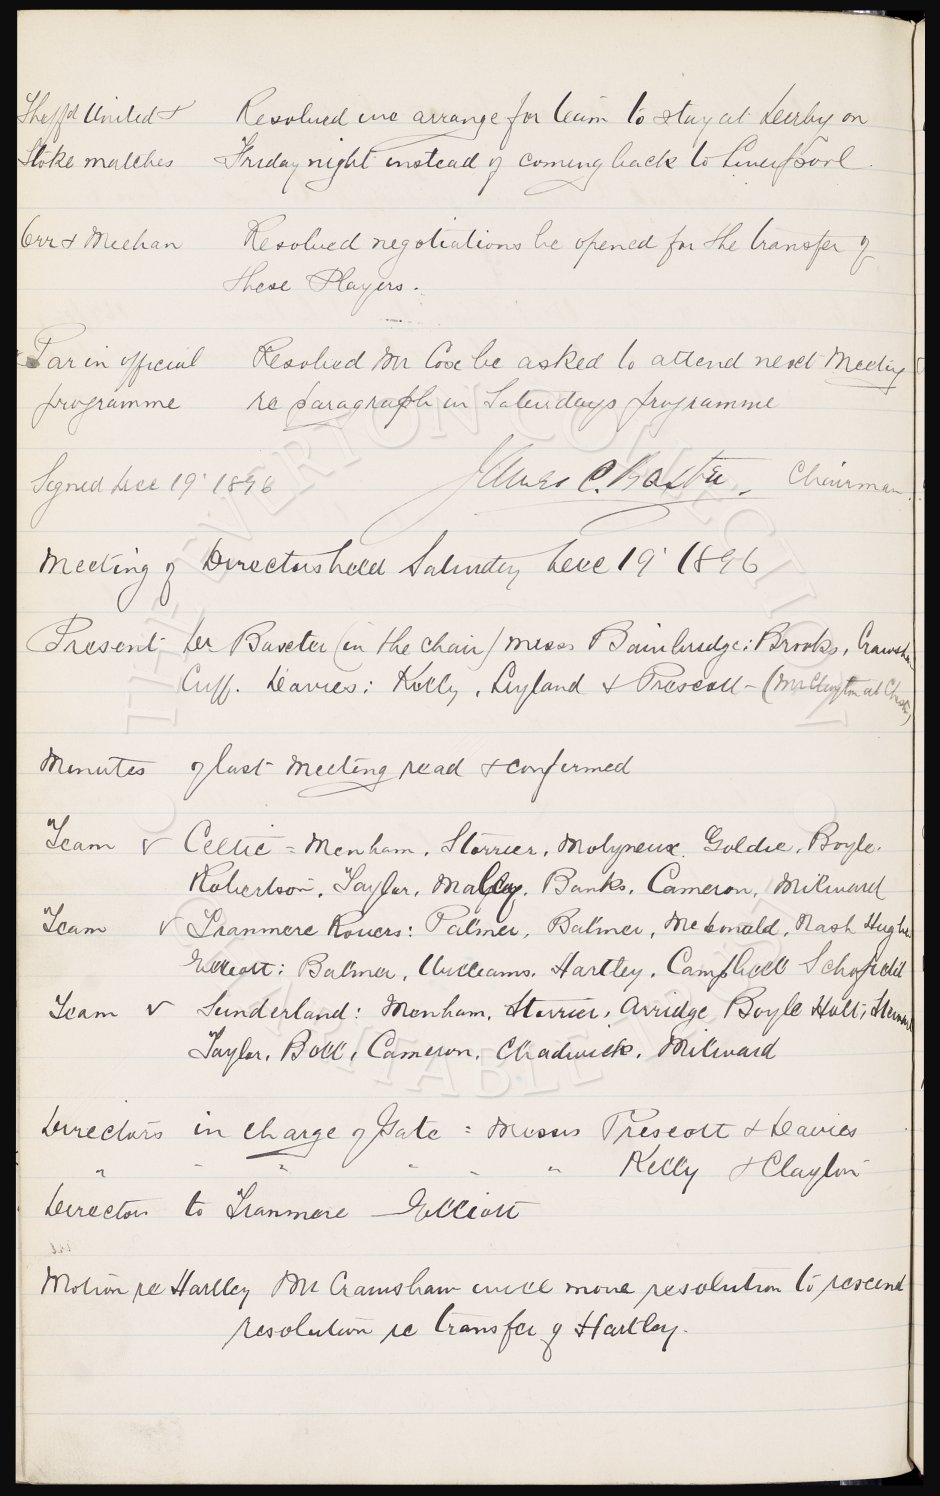 Sheffd United & Resolved we arrange for team to stay at Derby on
Stoke matches Friday night instead of coming back to Liverpool.
Orr & Meehan Resolved negotiations be opened for the transfer of
these Players.
Par in official Resolved Mr Cox be asked to attend next Meeting
programme re paragraph in Saturdays programme
Signed Dec 19' 1896 James C. Baxter. Chairman.
Meeting of Directors held Saturday Dec 19' 1896
Present Dr Baxter (in the chair) Messrs Bainbridge; Brooks, Crawshaw
Cuff. Davies; Kelly, Leyland & Prescott - (Mr Clayton at Chester)
Minutes of last Meeting read & confirmed
Team v Celtic = Menham, Storrier, Molyneux, Goldie, Boyle,
Robertson, Taylor, Banks, Cameron, Milward
Team v Tranmere Rovers: Palmer, Balmer, McDonald, Nash Hughes
Elliott: Balmer, Williams, Hartley, Campbell Schofield
Team v Sunderland: Menham, Storrier, Arridge Boyle Holt; Stewart
Taylor, Bell, Cameron, Chadwick, Milward
Directors in charge of Gate = Messrs Prescott & Davies
" " " " " " Kelly & Clayton
Director to Tranmere - Elliott
Motion re Hartley Mr Crawshaw will move resolution to rescind
resolution re transfer of Hartley.
THE EVERTON COLLECTION
CHARITABLE TRUST